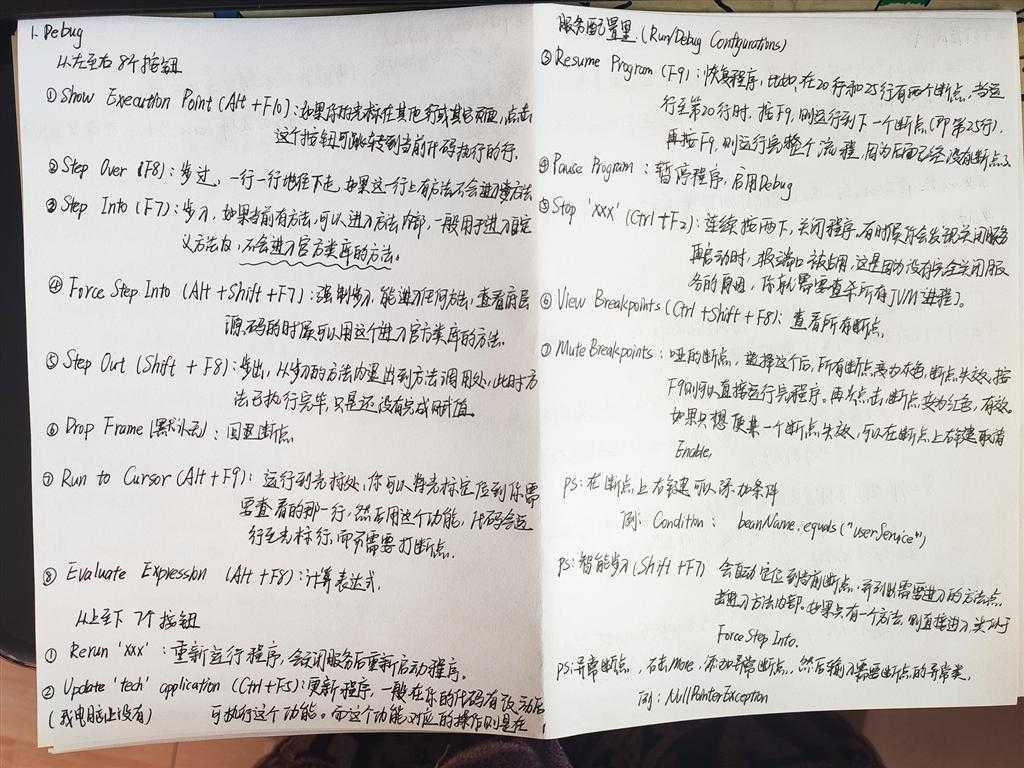 1. Debug
从左至右 8个按钮
① Show Execution Point (Alt + F10)：如果你的光标在其他行或其它页面，点击
这个按钮可跳转到当前代码执行的行.
② Step Over (F8)：步过，一行一行地往下走，如果这一行上有方法不会进入方法
③ Step Into (F7)：步入，如果当前有方法，可以进入方法内部，一般用于进入自定
义方法内，不会进入官方类库的方法。
④ Force Step Into (Alt + Shift + F7)：强制步入，能进入任何方法，查看底层
源码的时候可以用这个进入官方类库的方法。
⑤ Step Out (Shift + F8)：步出，从步入的方法内退出到方法调用处，此时方
法已执行完毕，只是还没有完成赋值。
⑥ Drop Frame (默认无)：回退断点.
⑦ Run to Cursor (Alt + F9)：运行到光标处，你可以将光标定位到你需
要查看的那一行，然后用这个功能，代码会运
行至光标行，而不需要打断点.
⑧ Evaluate Expression (Alt + F8)：计算表达式.
从上至下 7个按钮
① Rerun 'xxx'：重新运行程序，会关闭服务后重新启动程序。
② Update 'tech' application (Ctrl + F5)：更新程序，一般在你的代码有改动后
(我电脑上没有) 可执行这个功能。而这个功能对应的操作则是在
服务配置里.(Run/Debug Configurations)
③ Resume Program (F9)：恢复程序，比如，在20行和25行有两个断点，当运
行至第20行时，按F9，则运行到下一个断点(即第25行)，
再按F9，则运行完整个流程，因为后面已经没有断点了
④ Pause Program：暂停程序，启用Debug
⑤ Stop 'xxx' (Ctrl + F2)：连续按两下，关闭程序，有时候你会发现关闭服务
再启动时，报端口被占用，这是因为没有完全关闭服
务的原因，你就需要查杀所有JVM进程。
⑥ View Breakpoints (Ctrl + Shift + F8)：查看所有断点.
⑦ Mute Breakpoints：哑的断点，选择这个后，所有断点变为灰色，断点失效，按
F9则可以直接运行完程序。再次点击，断点变为红色，有效。
如果只想使某一个断点失效，可以在断点上右键取消
Enable,
ps：在断点上右键可以添加条件
例：Condition： beanName.equals("userService")
ps：智能步入(Shift + F7) 会自动定位到当前断点，并列出需要进入的方法，点
击进入方法内部。如果只有一个方法，则直接进入，类似于
Force Step Into.
ps：异常断点，右击More，添加异常断点，然后输入需要断点的异常类，
例：NullPointerException